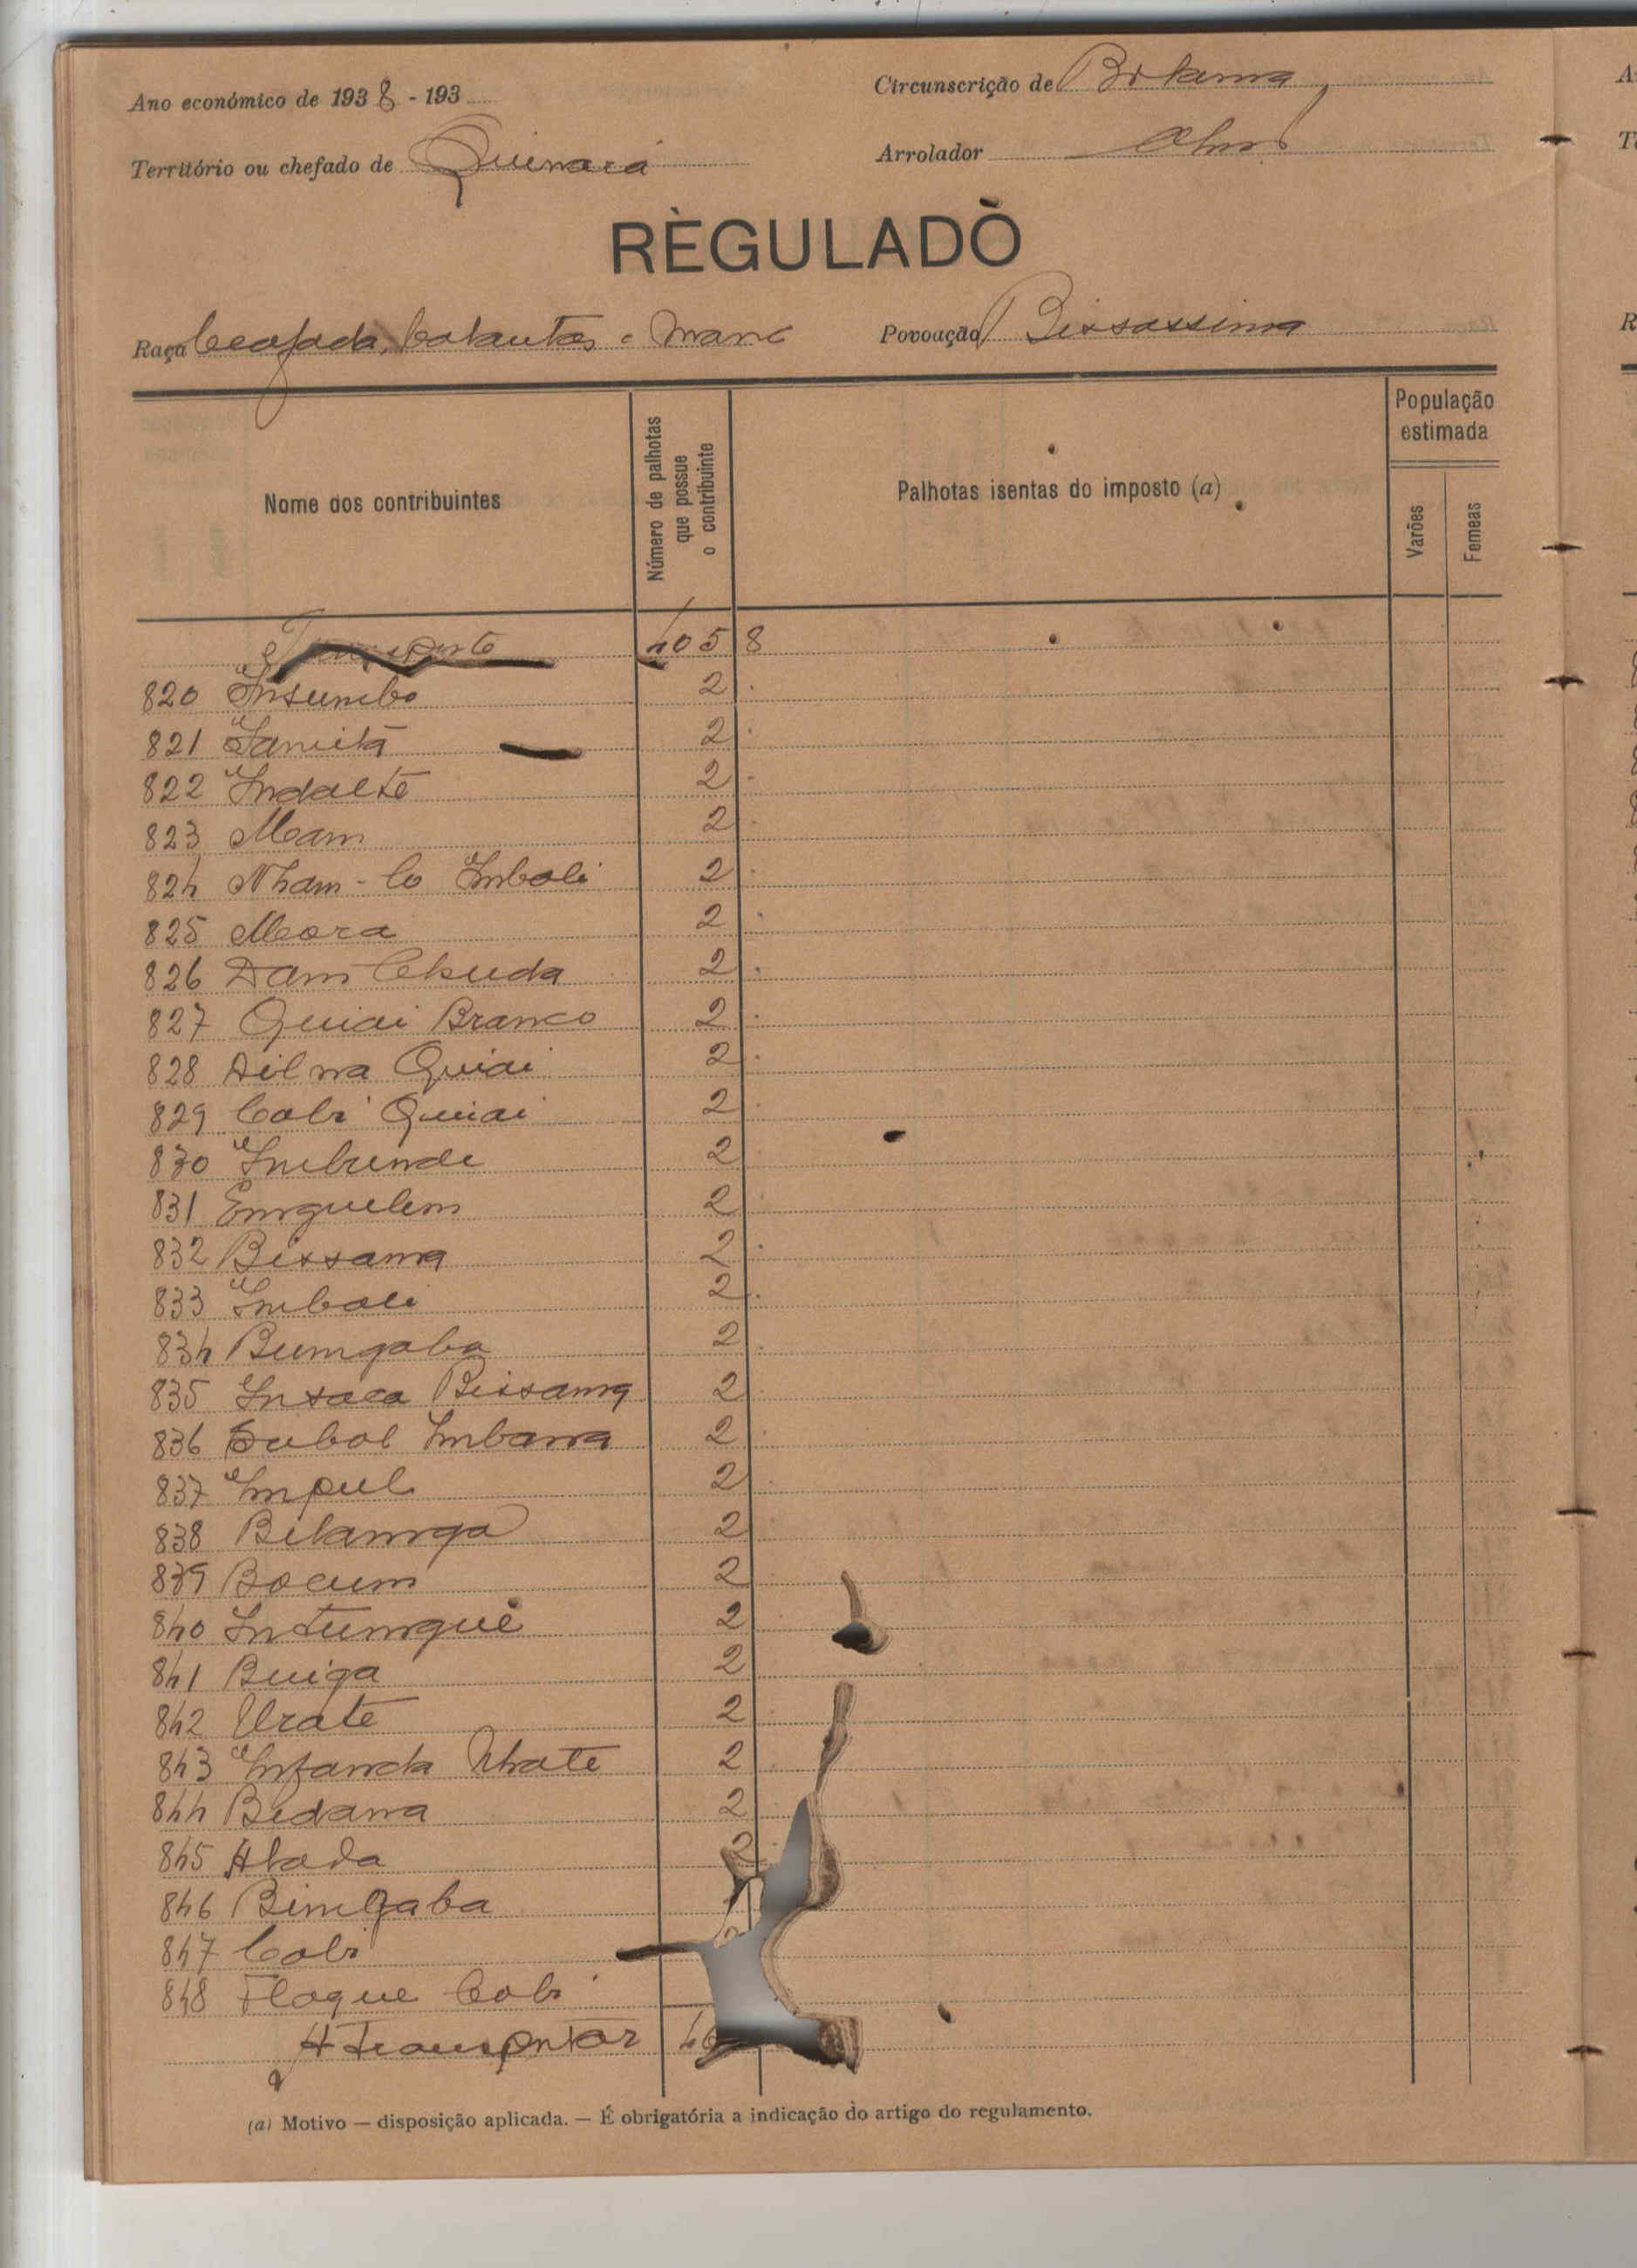 Ano económico de 1938 - 193
Circunscrição de Bolama
Território ou chefado de Quinará
Arrolador
REGULADO
Raça Beafada, balantas e manc
Povoação Bissassima
Nome dos contribuintes
Número de palhotas que possue o contribuinte
Palhotas isentas do imposto (a)
População estimada
Varões
Femeas
Transporte 1058
820 Insumbo 2
821 2
822 Indalté 2
823 Mam 2
824 Nham-Co Imbali 2
825 2
826 Dam Chuda 2
827 Quiai Branco 2
828 Dilna Quiai 2
829 Cabi Quiai 2
830 Imbunde 2
831 Enguelem 2
832 Bissana 2
833 Imbali 2
834 Bungaba 2
835 Insaca Bissang 2
836 Imbana 2
837 Impul 2
838 Bitanga 2
839 Bocum 2
840 Intungué 2
841 Buiga 2
842 Urate 2
843 Infanda Urate 2
844 Bedana 2
845 Abada 2
846 Bingaba
847 Cabi
848 Floque Cabi
A Transportar
(a) Motivo — disposição aplicada. — É obrigatória a indicação do artigo do regulamento.